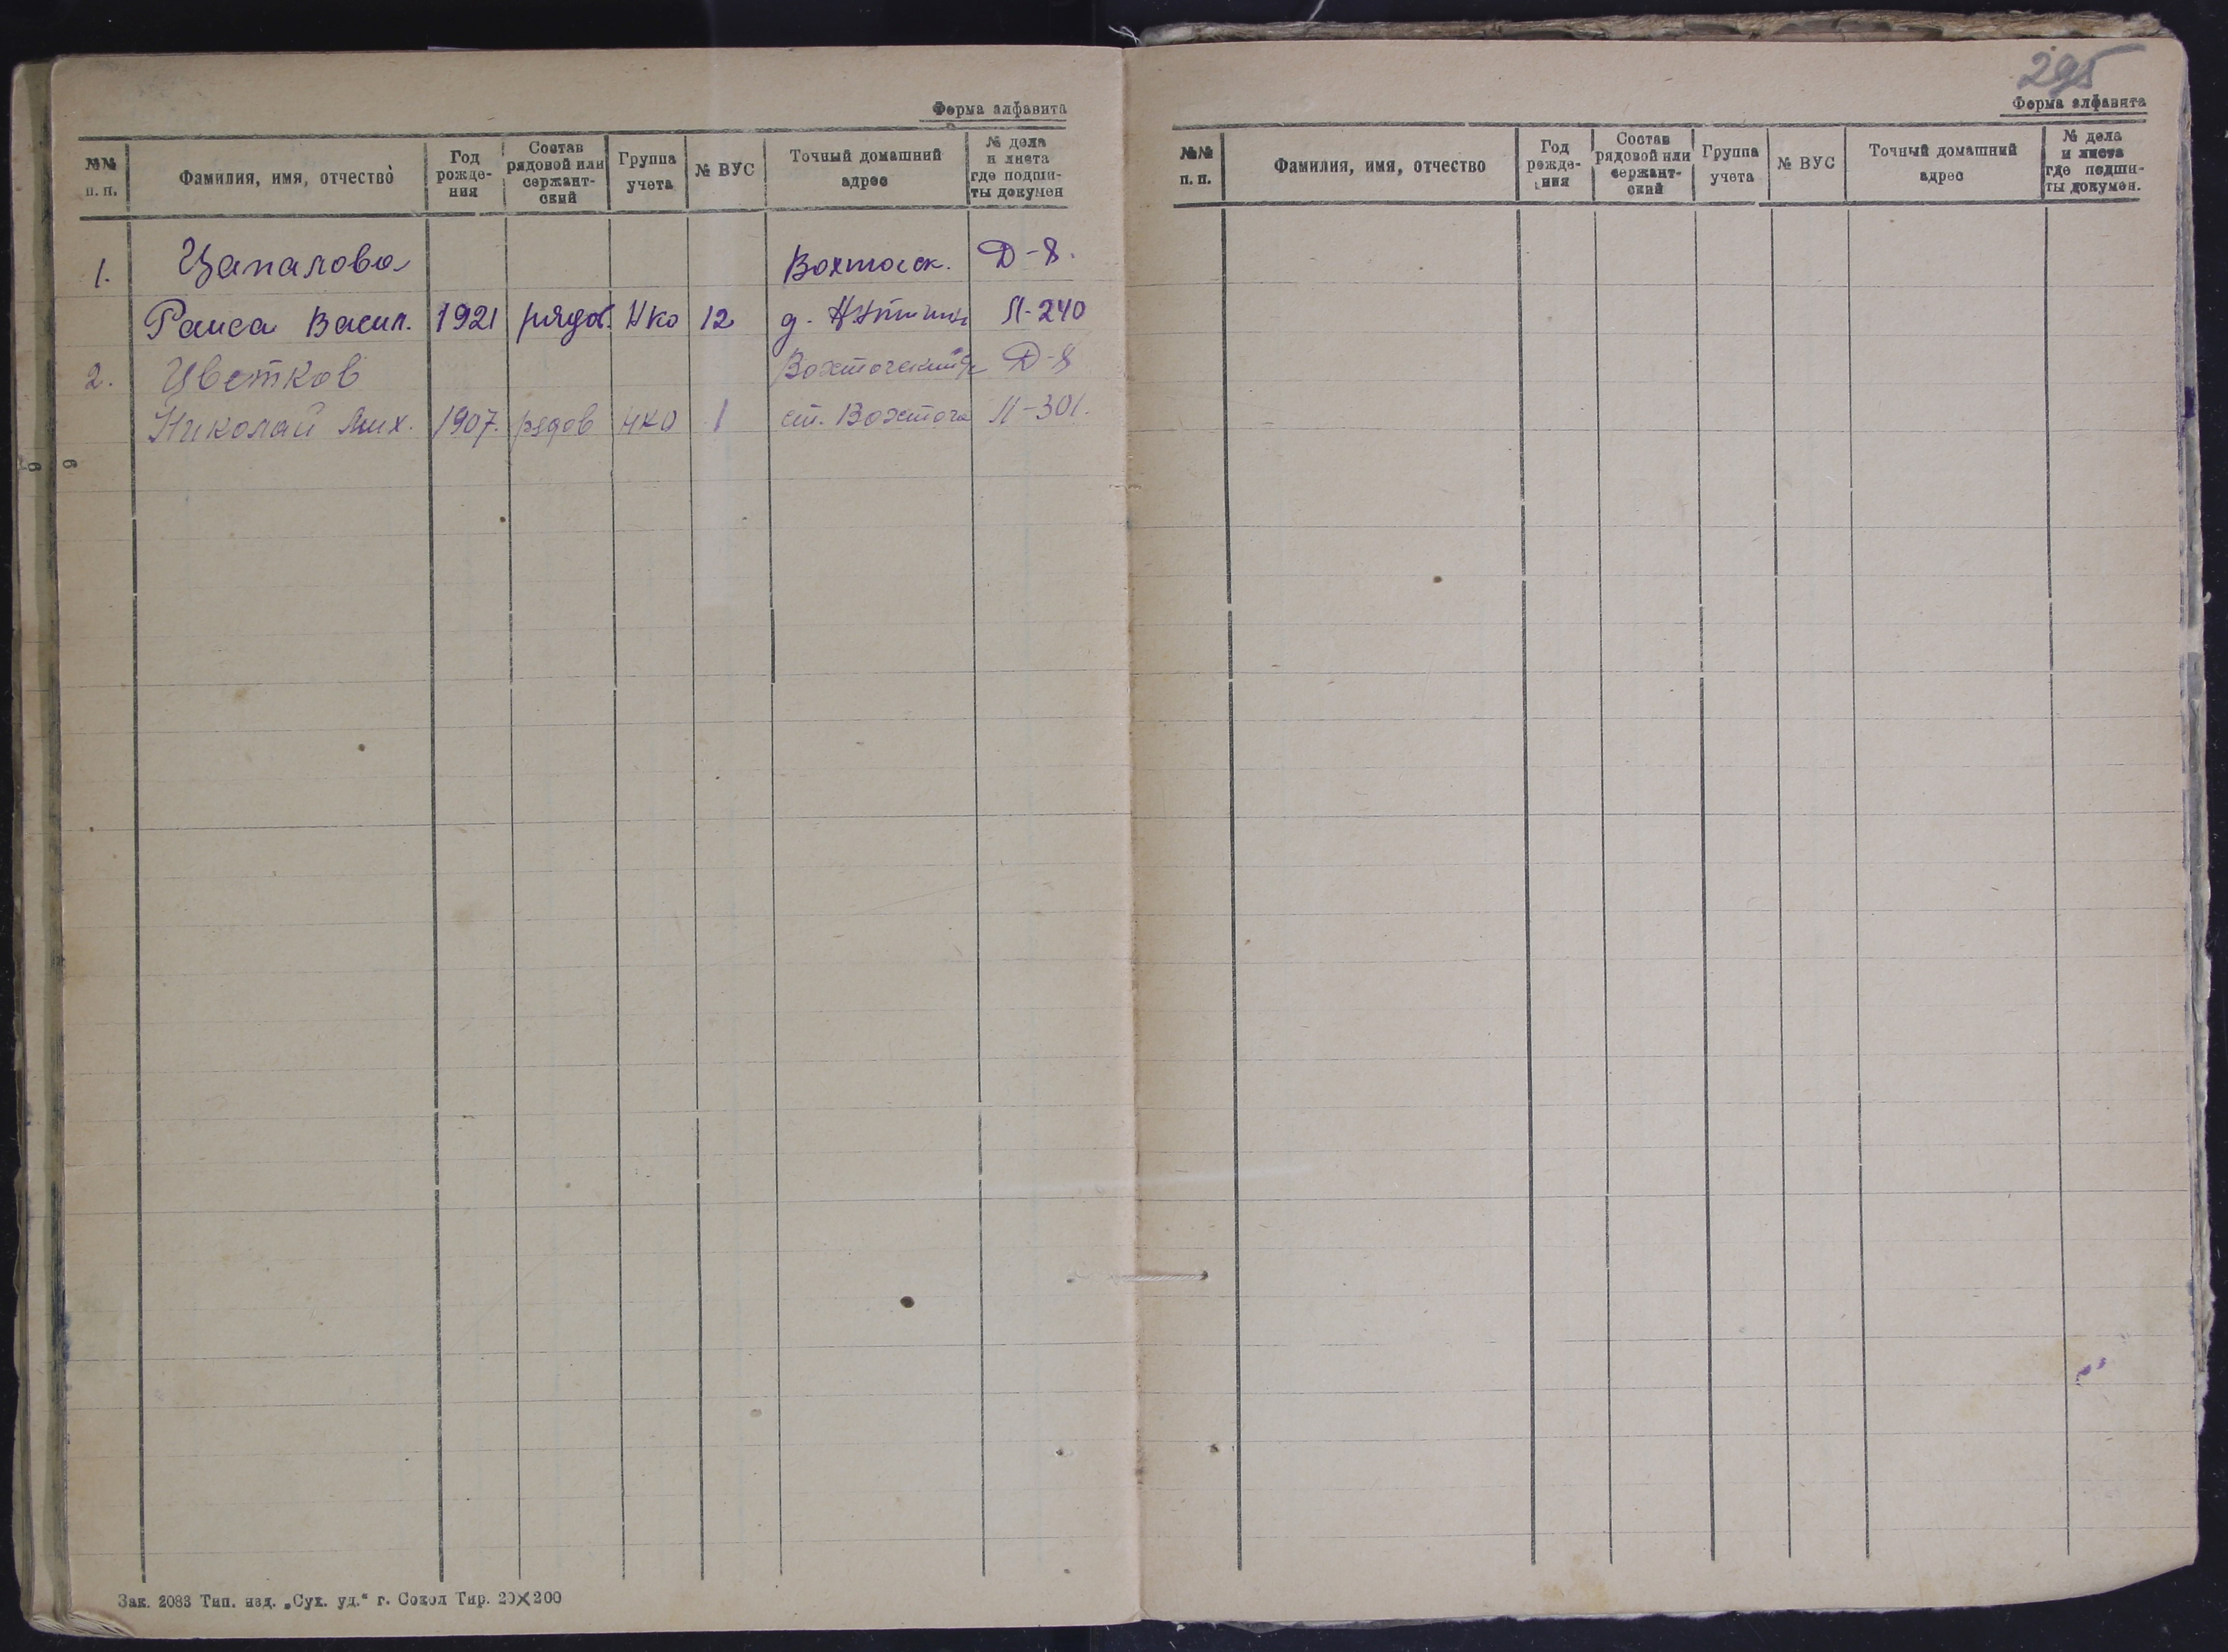 Форма алфавита
№№ п. п. Фамилия, имя, отчество Год рожде- ния Состав рядовой или сержант- ский Группа учета № ВУС Точный домашний адрес № дела и листа где подши- ты докумен
1. Цапалова Вохтогск. Д-8.
Раиса Васил. 1921 рядов. НКО 12 д. Л-240
2. Цветков Вохтогский Д-8
Николай Мих. 1907. рядов НКО 1 ст. Вохтога Л-301.
Зак. 2083 Тип. изд. „Сух. уд.“ г. Сокол Тир. 20×200
295
Форма алфавита
№№ п. п. Фамилия, имя, отчество Год рожде- ния Состав рядовой или сержант- ский Группа учета № ВУС Точный домашний адрес № дела и листа где подши- ты докумен.